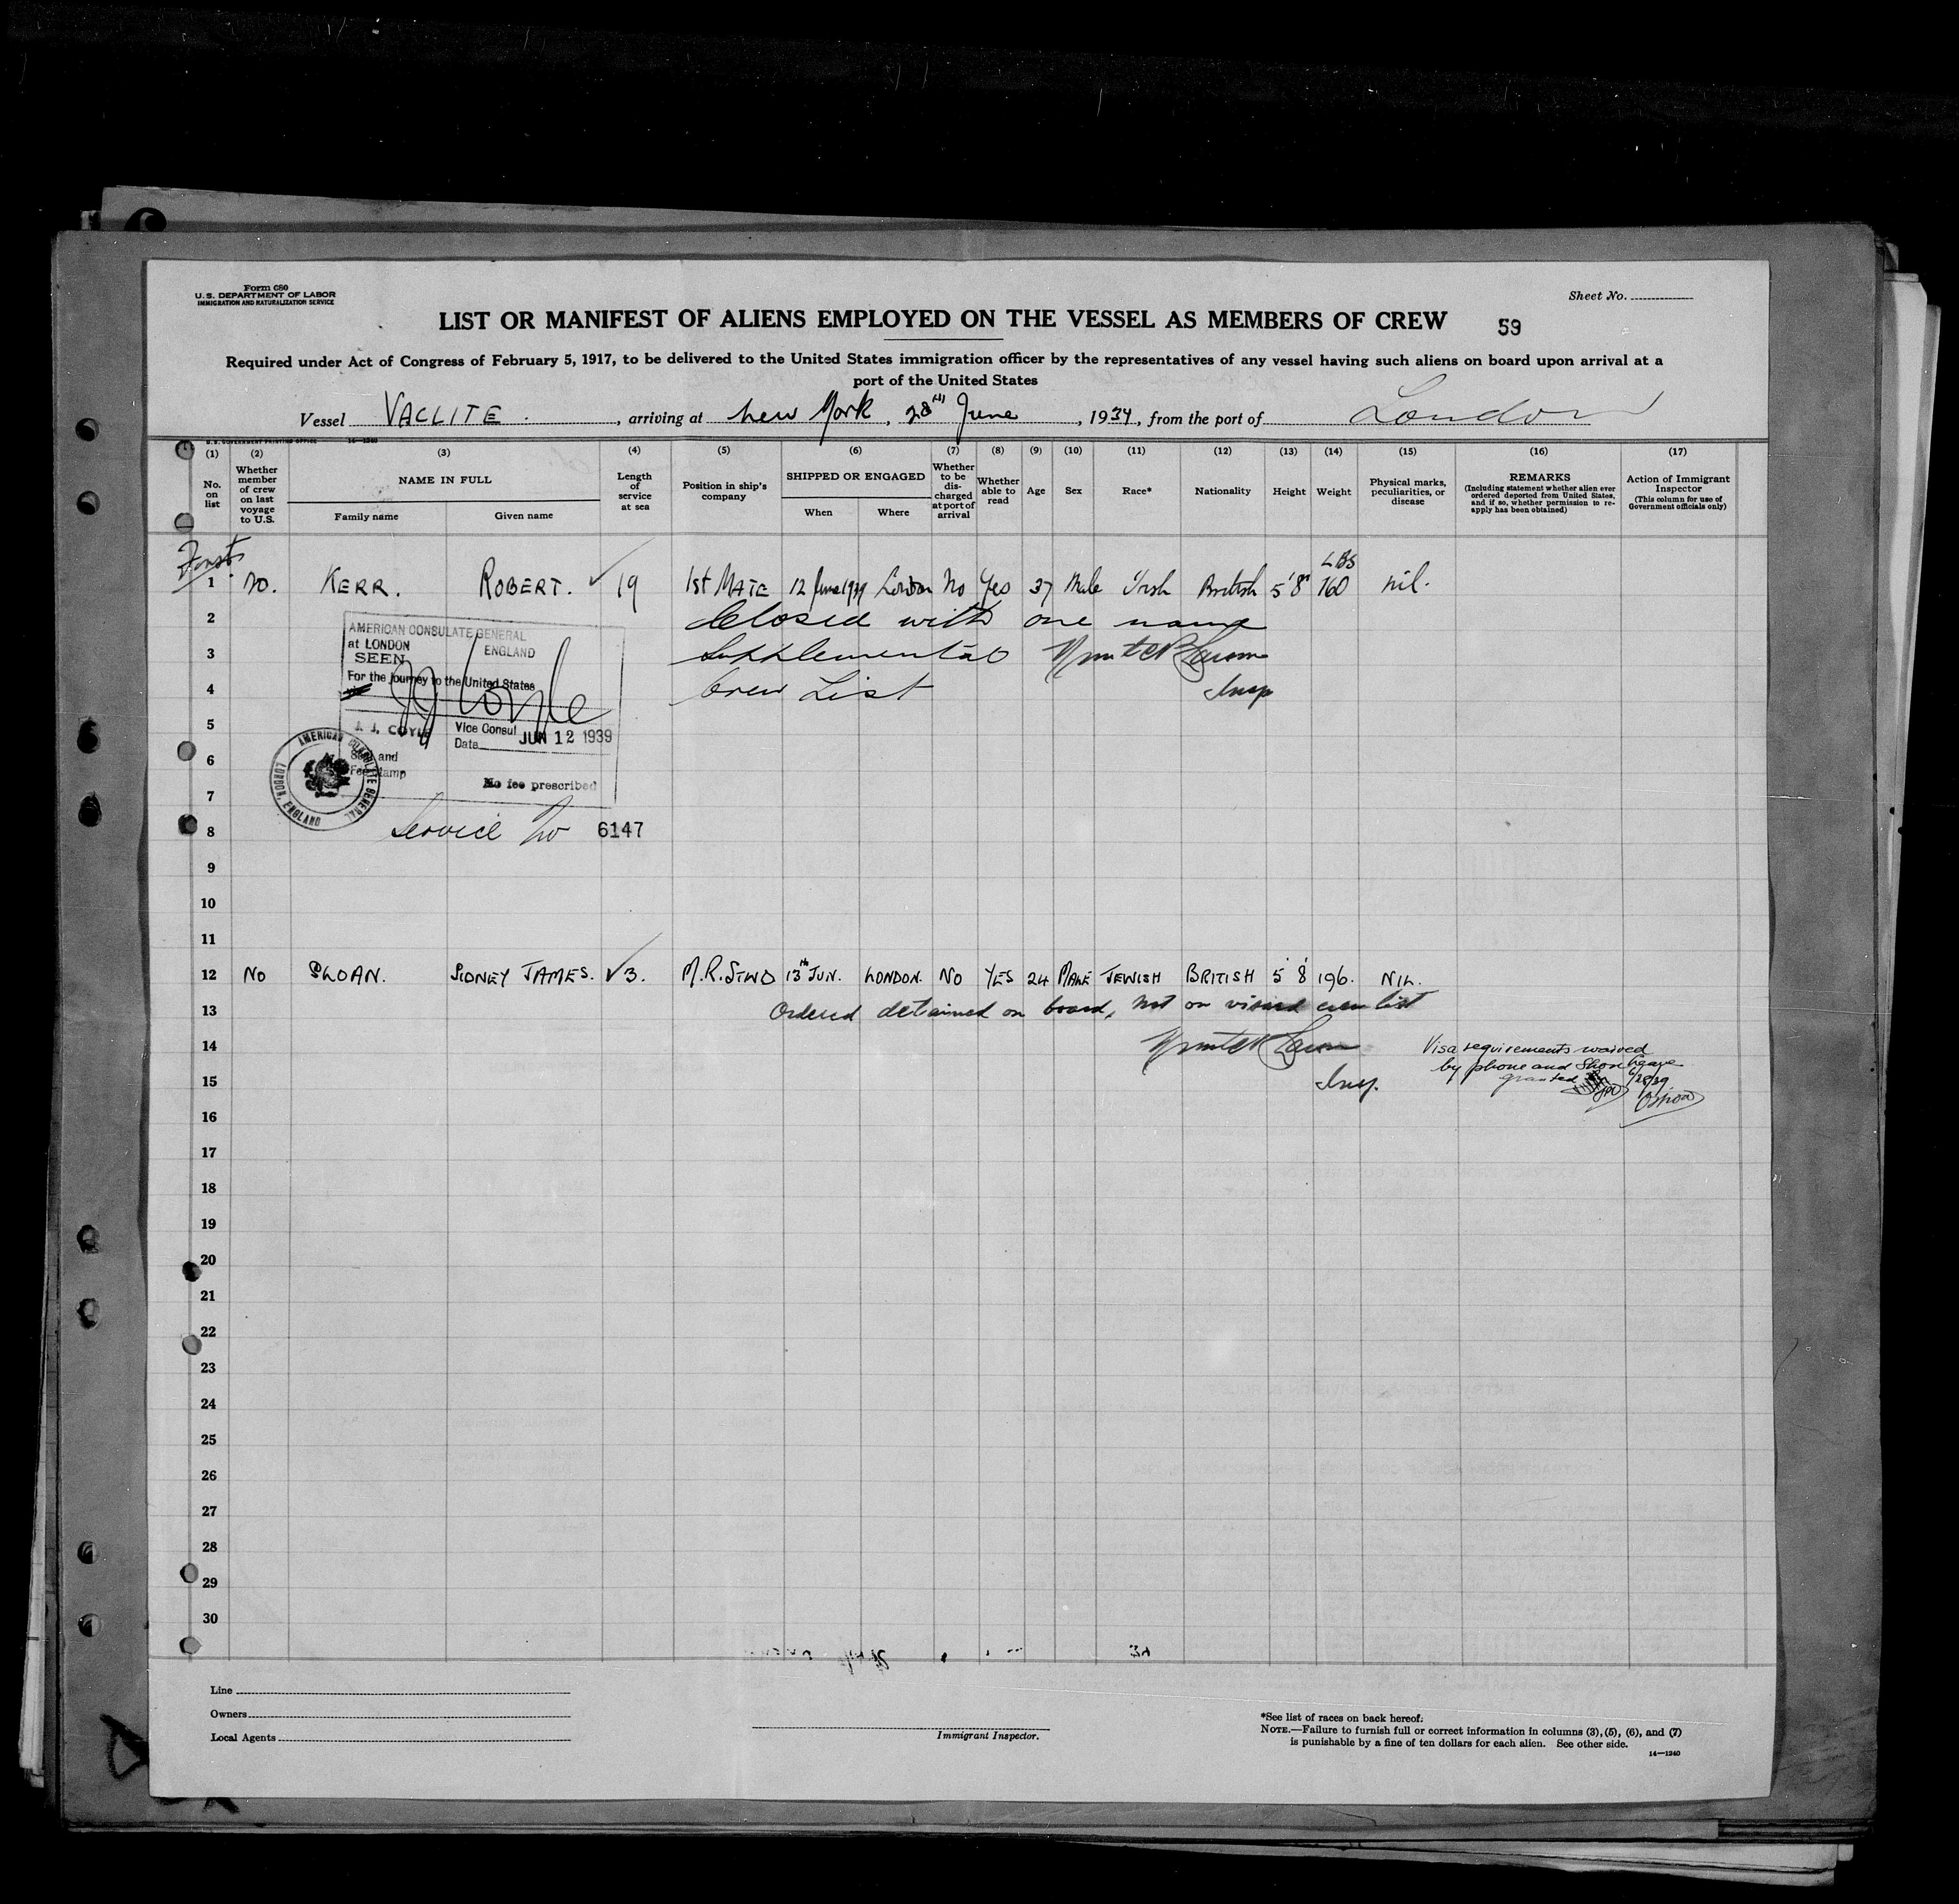 Form 680
U.S. DEPARTMENT OF LABOR
IMMIGRATION AND NATURALIZATION SERVICE
Sheet No.
LIST OR MANIFEST OF ALIENS EMPLOYED ON THE VESSEL AS MEMBERS OF CREW 59
Required under Act of Congress of February 5, 1917, to be delivered to the United States immigration officer by the representatives of any vessel having such aliens on board upon arrival at a
port of the United States
Vessel VACLITE. , arriving at New York, 28TH June , 1939, from the port of London
U.S. GOVERNMENT PRINTING OFFICE 14—1240
(1) (2) (3) (4) (5) (6) (7) (8) (9) (10) (11) (12) (13) (14) (15) (16) (17)
No. on list
Whether member of crew on last voyage to U.S.
NAME IN FULL
Family name Given name
Length of service at sea
Position in ship's company
SHIPPED OR ENGAGED
When Where
Whether to be discharged at port of arrival
Whether able to read
Age
Sex
Race*
Nationality
Height
Weight
Physical marks, peculiarities, or disease
REMARKS
(Including statement whether alien ever ordered deported from United States, and if so, whether permission to reapply has been obtained)
Action of Immigrant Inspector
(This column for use of Government officials only)
LBS
1 No. KERR. ROBERT. 19 1st MATE 12 June 1939 London No Yes 37 Male Irish British 5'8" 160 nil.
2 Closed with one name
3 Supplemental
4 Crew List Insp
AMERICAN CONSULATE GENERAL
at LONDON ENGLAND
SEEN
For the journey to the United States
J. J. COYLE Vice Consul
Date JUN 12 1939
Seal and
Fee Stamp
No fee prescribed
AMERICAN CONSULATE GENERAL
LONDON, ENGLAND
5
6
7
8 Service No 6147
9
10
11
12 NO SLOAN. SIDNEY JAMES. 3. M.R. STWD 13th JUN. LONDON. NO YES 24 MALE JEWISH BRITISH 5'8' 196. NIL.
13 Ordered detained on board, not on visaed crew list
14 Visa requirements waived
15 Insp. by phone and Shore leave
granted 6/28/39
16
17
18
19
20
21
22
23
24
25
26
27
28
29
30
Line
Owners
Local Agents
Immigrant Inspector.
*See list of races on back hereof.
NOTE.—Failure to furnish full or correct information in columns (3), (5), (6), and (7)
is punishable by a fine of ten dollars for each alien. See other side.
14—1240